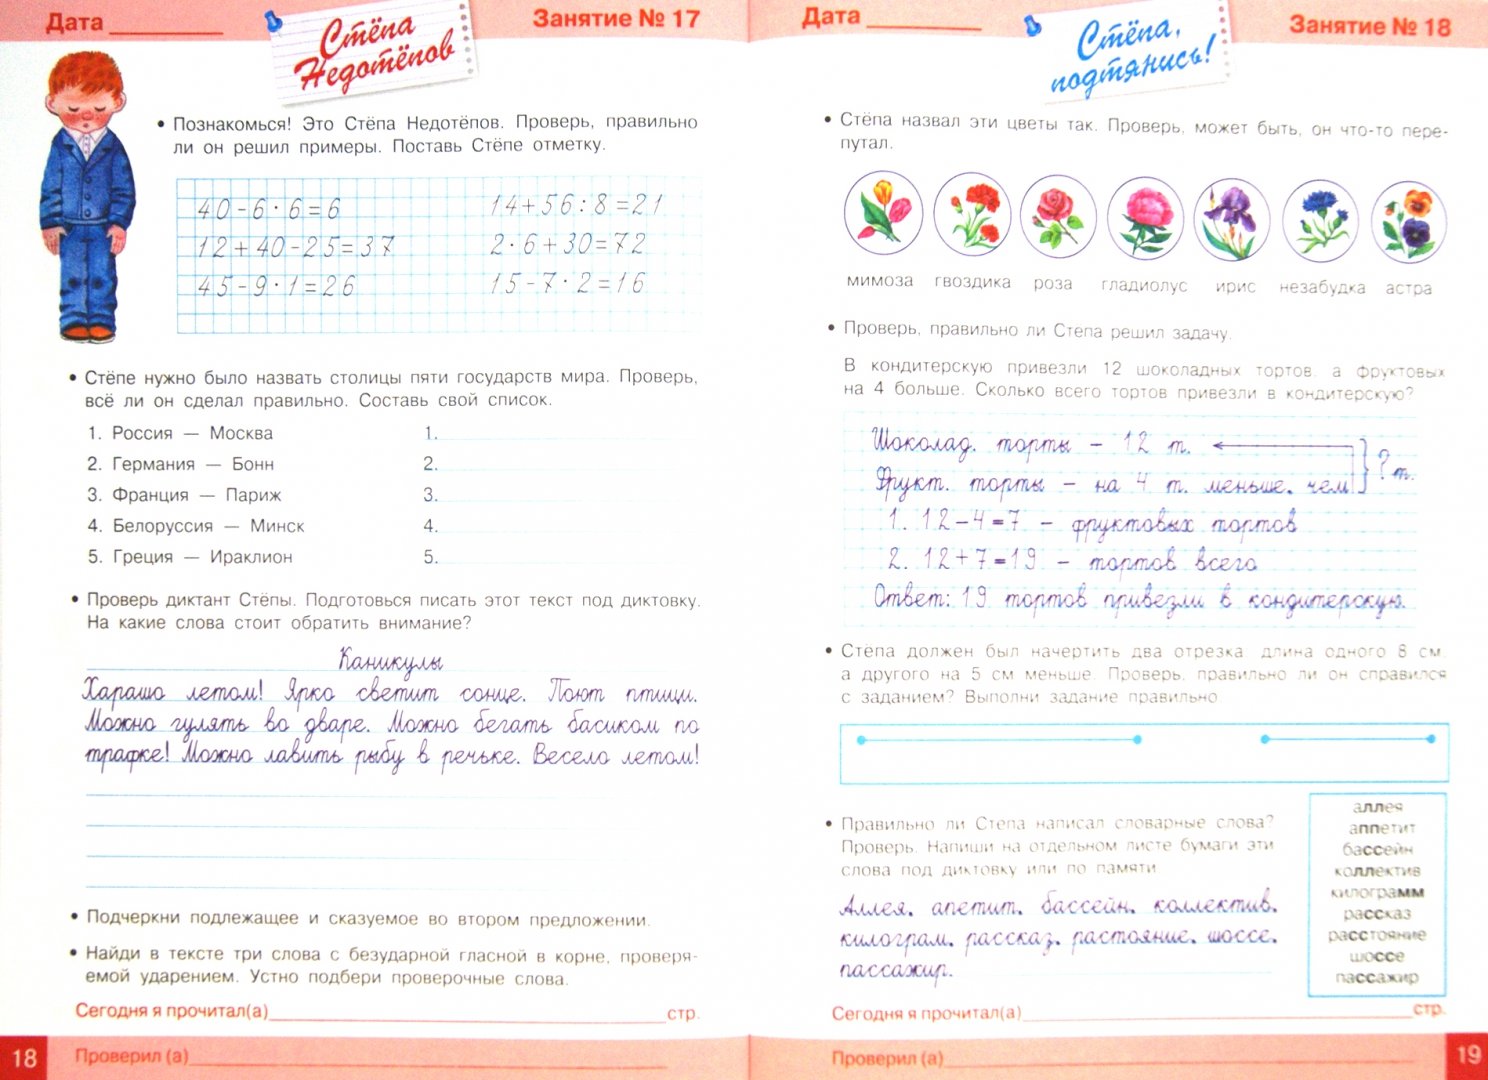 Дата
Стёпа
Недотёпов
Занятие № 17
• Познакомься! Это Стёпа Недотёпов. Проверь, правильно
ли он решил примеры. Поставь Стёпе отметку.
40-6·6=6
14+56:8=21
12+40-25=37
2·6+30=72
45-9·1=26
15-7·2=16
• Стёпе нужно было назвать столицы пяти государств мира. Проверь,
всё ли он сделал правильно. Составь свой список.
1. Россия — Москва
1.
2. Германия — Бонн
2.
3. Франция — Париж
3.
4. Белоруссия — Минск
4.
5. Греция — Ираклион
5.
• Проверь диктант Стёпы. Подготовься писать этот текст под диктовку.
На какие слова стоит обратить внимание?
Каникулы
Харашо летом! Ярко светит сонце. Поют птици.
Можно гулять во дваре. Можно бегать басиком по
трафке! Можно лавить рыбу в речьке. Весело летом!
• Подчеркни подлежащее и сказуемое во втором предложении.
• Найди в тексте три слова с безударной гласной в корне, проверя-
емой ударением. Устно подбери проверочные слова.
Сегодня я прочитал(а) стр.
18
Проверил (а)
Дата
Стёпа,
подтянись!
Занятие № 18
• Стёпа назвал эти цветы так. Проверь, может быть, он что-то пере-
путал.
мимоза гвоздика роза гладиолус ирис незабудка астра
• Проверь, правильно ли Степа решил задачу.
В кондитерскую привезли 12 шоколадных тортов, а фруктовых
на 4 больше. Сколько всего тортов привезли в кондитерскую?
Шоколад. торты – 12 т.
Фрукт. торты – на 4 т. меньше, чем
? т.
1. 12-4=7 – фруктовых тортов
2. 12+7=19 – тортов всего
Ответ: 19 тортов привезли в кондитерскую.
• Стёпа должен был начертить два отрезка: длина одного 8 см,
а другого на 5 см меньше. Проверь, правильно ли он справился
с заданием? Выполни задание правильно.
• Правильно ли Степа написал словарные слова?
Проверь. Напиши на отдельном листе бумаги эти
слова под диктовку или по памяти.
Аллея, апетит, бассейн, коллектив,
килограм, рассказ, растояние, шоссе,
пассажир.
аллея
аппетит
бассейн
коллектив
килограмм
рассказ
расстояние
шоссе
пассажир
Сегодня я прочитал(а) стр.
Проверил (а)
19